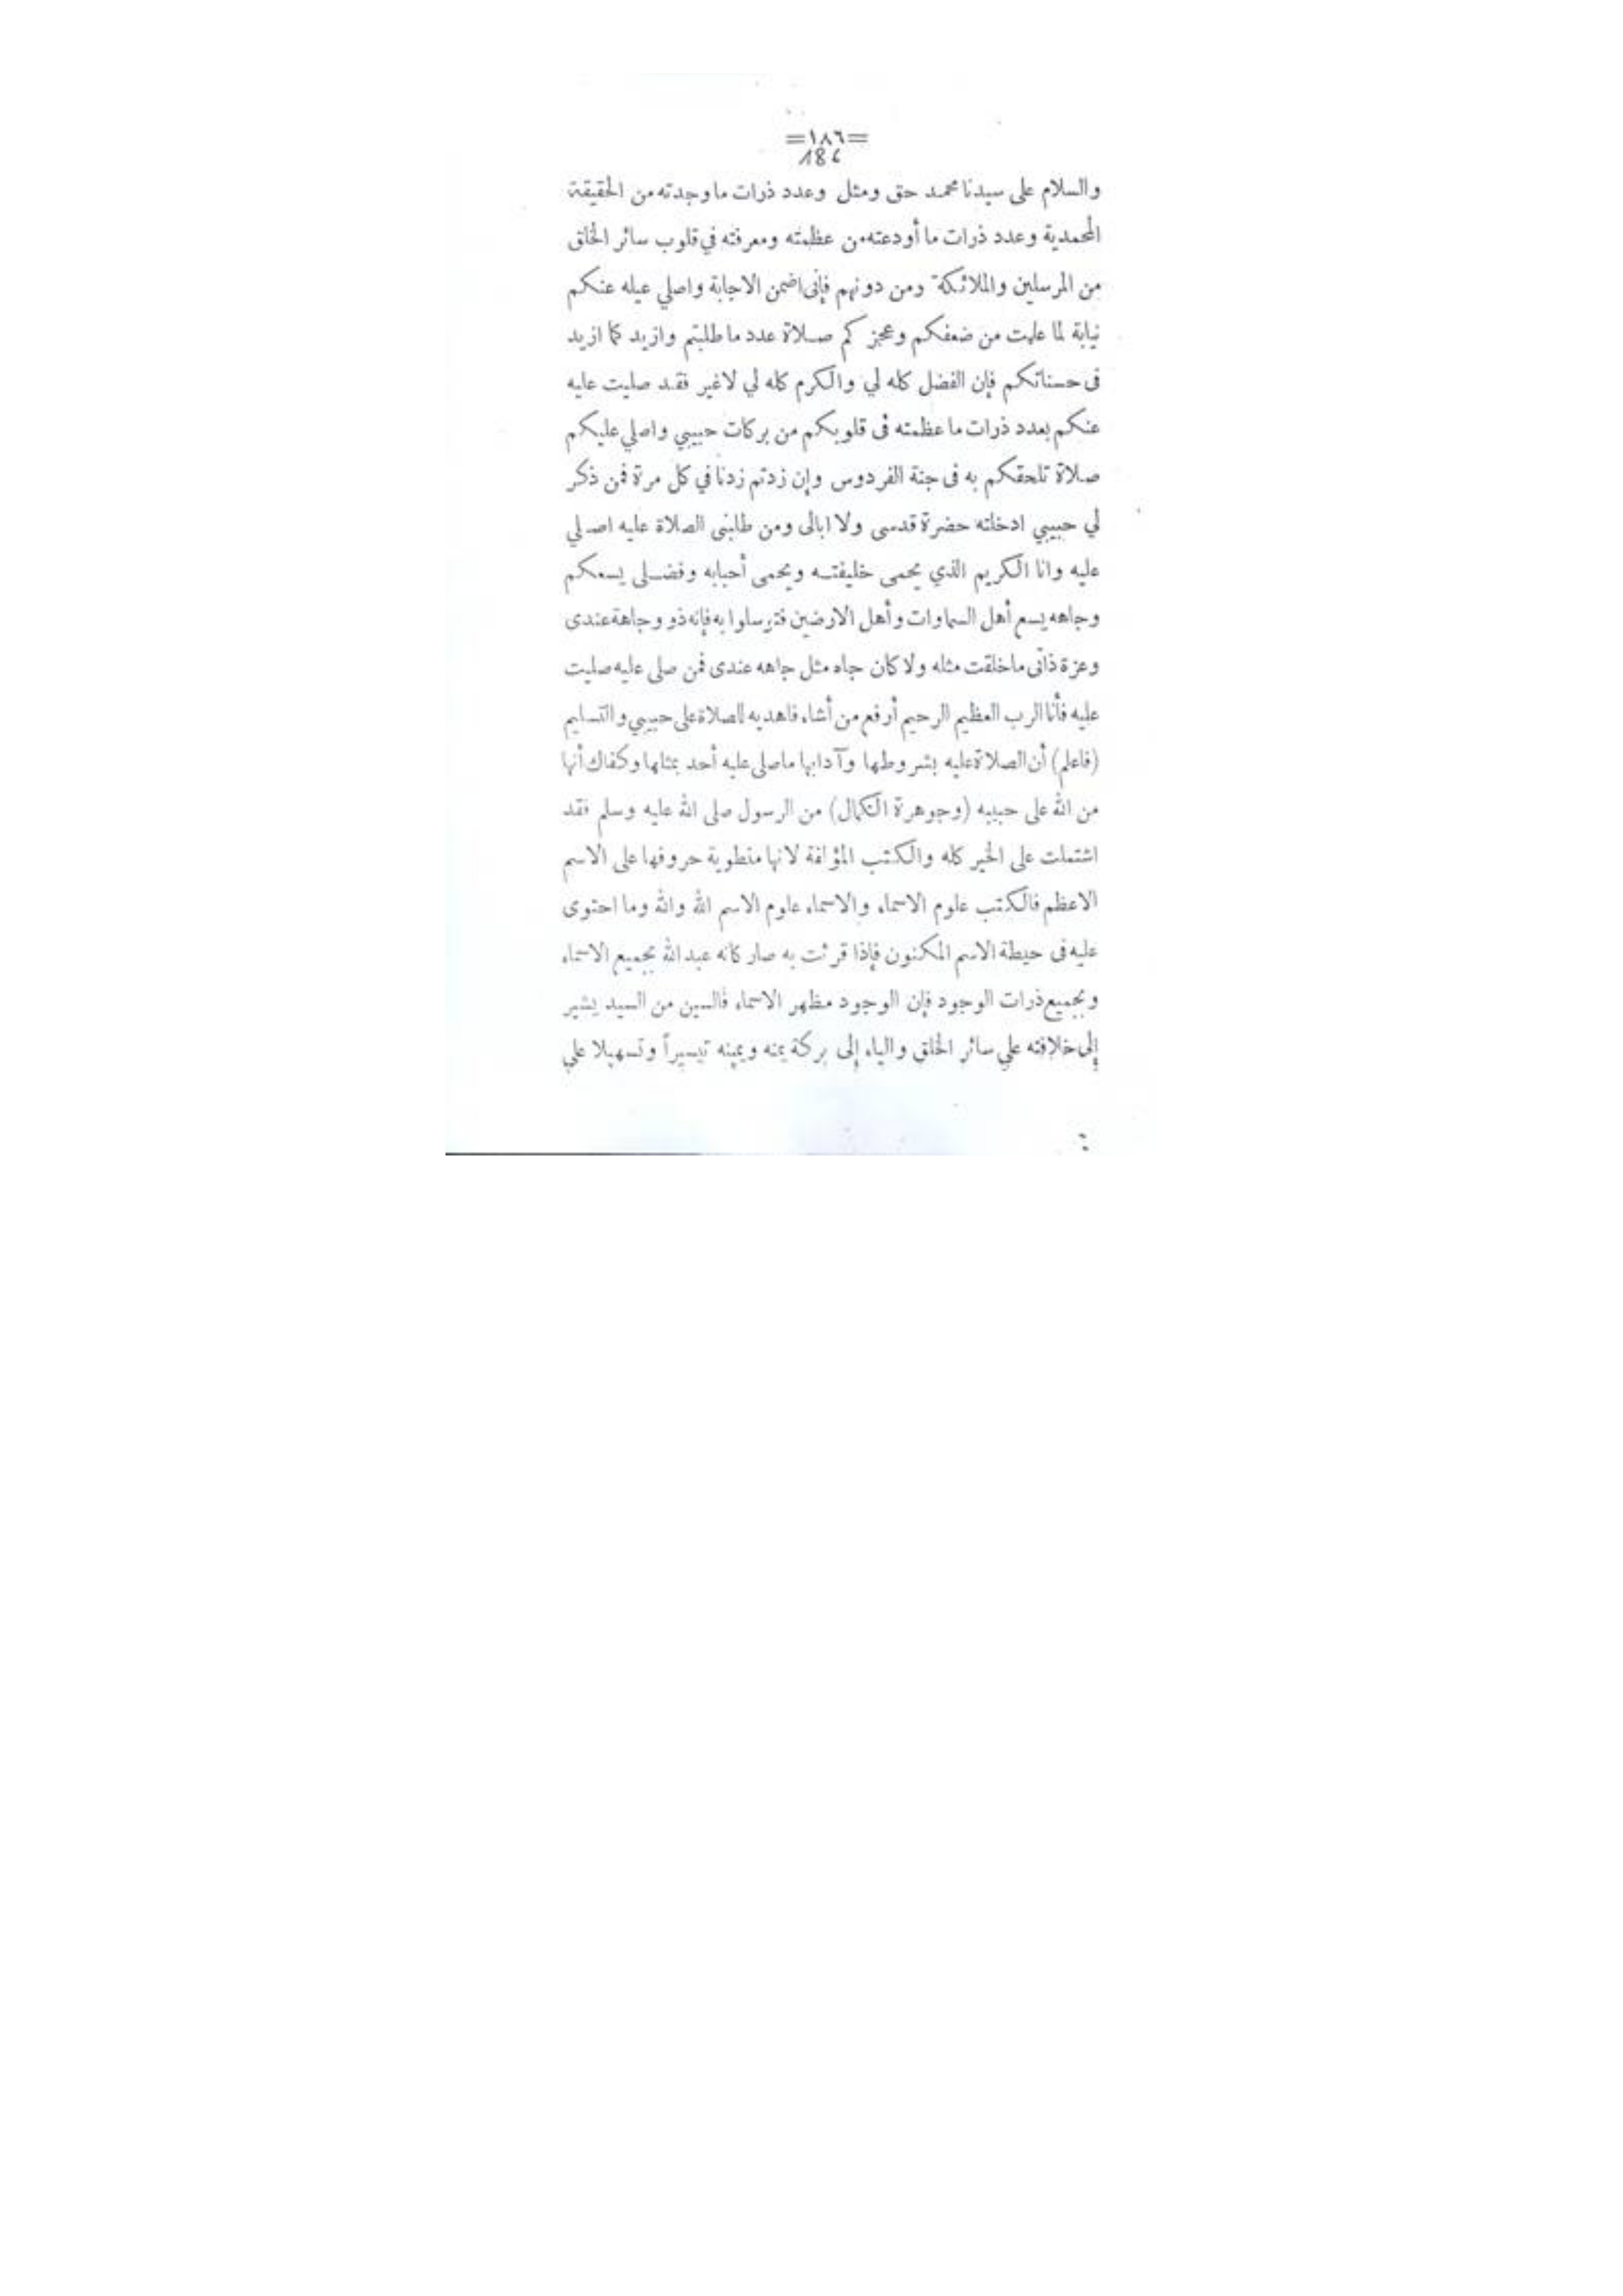 =١٨٦=
186
والسلام على سيدنا محمد حق ومثل وعدد ذرات ما وجدته من الحقيقة
المحمدية وعدد ذرات ما أودعته من عظمته ومعرفته في قلوب سائر الخلق
من المرسلين والملائكة ومن دونهم فإنى اضمن الاجابة واصلي عيله عنكم
نيابة لما علمت من ضعفكم وعجز كم صلاة عدد ما طلبتم وازيد كما ازيد
فى حسناتكم فإن الفضل كله لي والكرم كله لي لاغير فقد صليت عليه
عنكم بعدد ذرات ما عظمته فى قلوبكم من بركات حبيبي واصلي عليكم
صلاة تلحقكم به فى جنة الفردوس وإن زدتم زدنا في كل مرة فمن ذكر
لي حبيبي ادخلته حضرة قدسى ولا ابالى ومن طلبنى الصلاة عليه اصلي
عليه وانا الكريم الذي يحمى خليفته ويحمى أحبابه وفضلى يسعكم
وجاهه يسع أهل السماوات وأهل الارضين فتوسلوا به فإنه ذو وجاهة عندى
وعزة ذاتى ما خلقت مثله ولا كان جاه مثل جاهه عندى فمن صلى عليه صليت
عليه فأنا الرب العظيم الرحيم أرفع من أشاء فاهديه للصلاة على حبيبي والتسليم
(فاعلم) أن الصلاة عليه بشروطها وآدابها ما صلى عليه أحد بمثلها وكفاك أنها
من الله على حبيبه (وجوهرة الكمال) من الرسول صلى الله عليه وسلم فقد
اشتملت على الخير كله والكتب المؤلفة لانها منطوية حروفها على الاسم
الاعظم فالكتب علوم الاسماء والاسماء علوم الاسم الله والله وما احتوى
عليه فى حيطة الاسم المكنون فإذا قرئت به صار كانه عبد الله بجميع الاسماء
وبجميع ذرات الوجود فإن الوجود مظهر الاسماء فالسين من السيد يشير
إلى خلافته علي سائر الخلق والياء إلى بركة يمنه ويمينه تيسيراً وتسهيلا علي